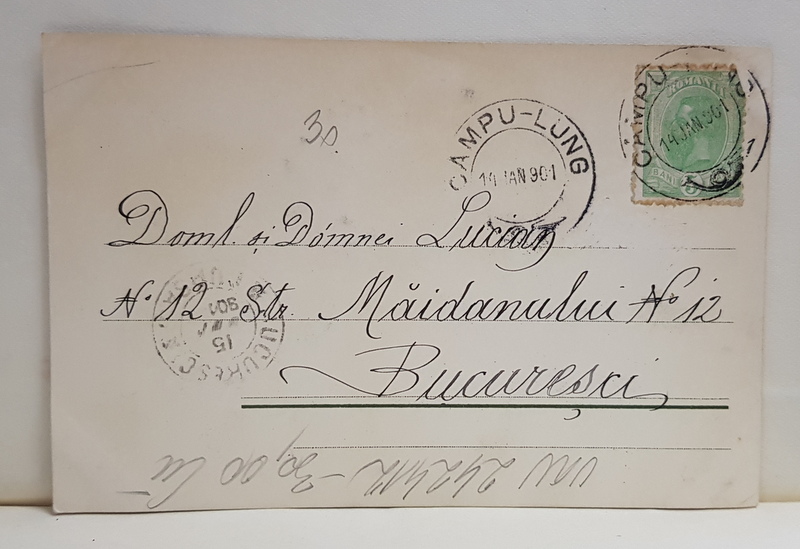 30.
CÂMPU-LUNG
14 JAN 901
CÂMPU-LUNG
14 JAN 901
ROMANIA
BANI
5
Doml. și Dómnei Lucian
No 12 Str. Măidanului No 12
București
BUCURESCI
15
901
2424M - 30,00 lei